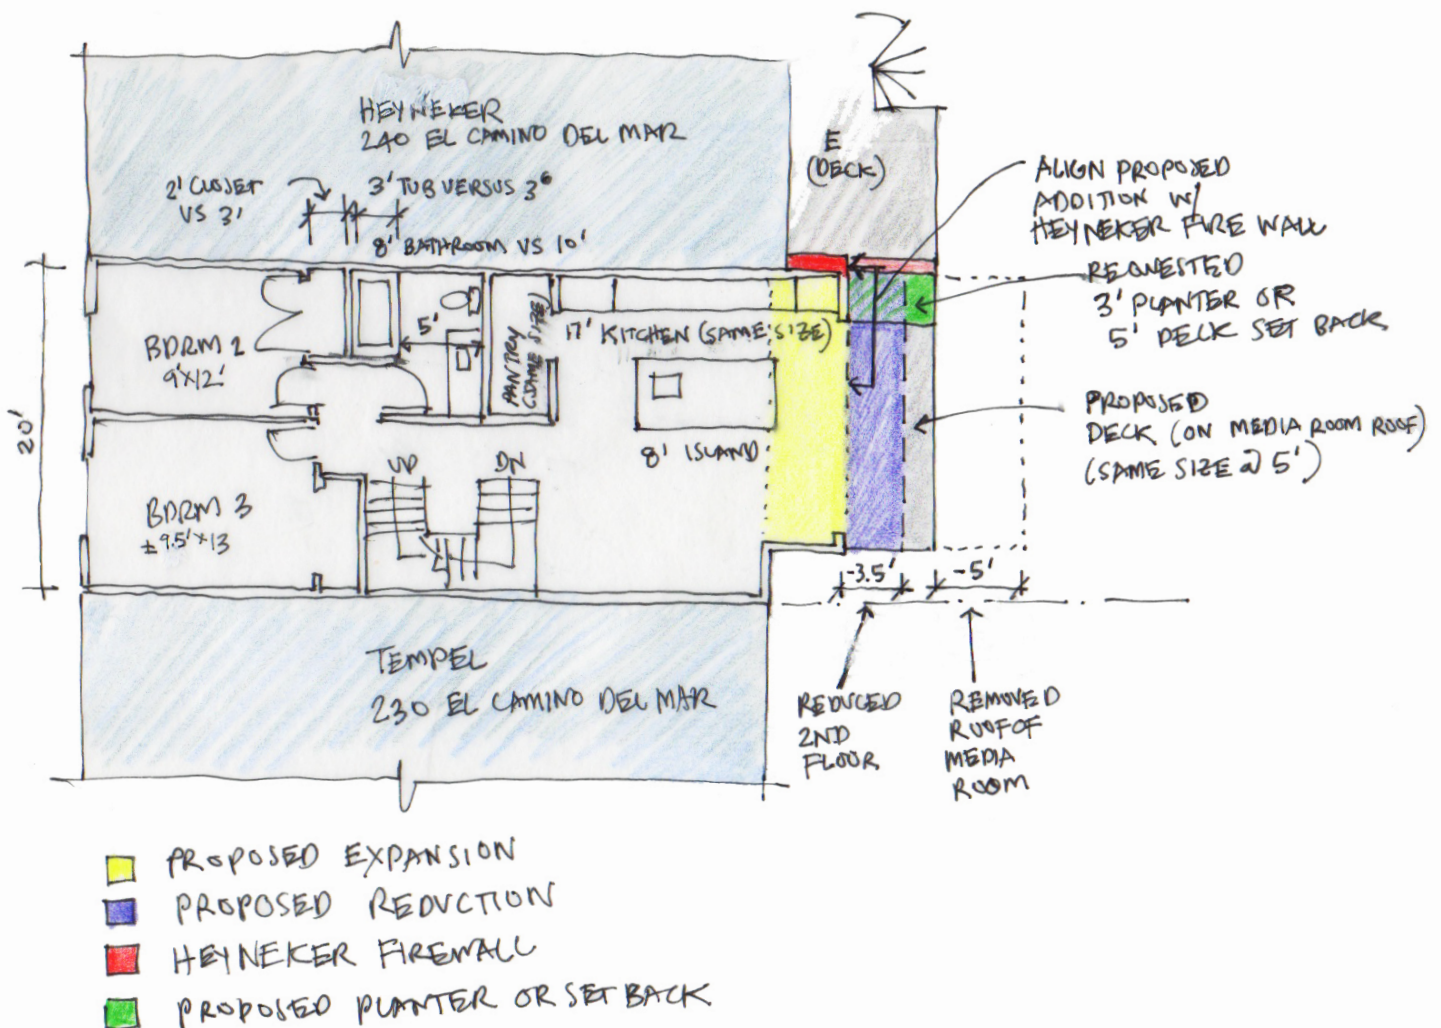 HEYNEKER
240 EL CAMINO DEL MAR
2' CLOSET
VS 3'
3' TUB VERSUS 3⁶
8' BATHROOM VS 10'
E
(DECK)
ALIGN PROPOSED
ADDITION W/
HEYNEKER FIRE WALL
REQUESTED
3' PLANTER OR
5' DECK SET BACK
PROPOSED
DECK (ON MEDIA ROOM ROOF)
(SAME SIZE @ 5')
20'
BDRM 2
9'X12'
5'
PANTRY
(SAME SIZE)
17' KITCHEN (SAME SIZE)
8' ISLAND
BDRM 3
± 9.5' X 13
UP
DN
-3.5'
-5'
REDUCED
2ND
FLOOR
REMOVED
ROOF OF
MEDIA
ROOM
TEMPEL
230 EL CAMINO DEL MAR
PROPOSED EXPANSION
PROPOSED REDUCTION
HEYNEKER FIREWALL
PROPOSED PLANTER OR SET BACK